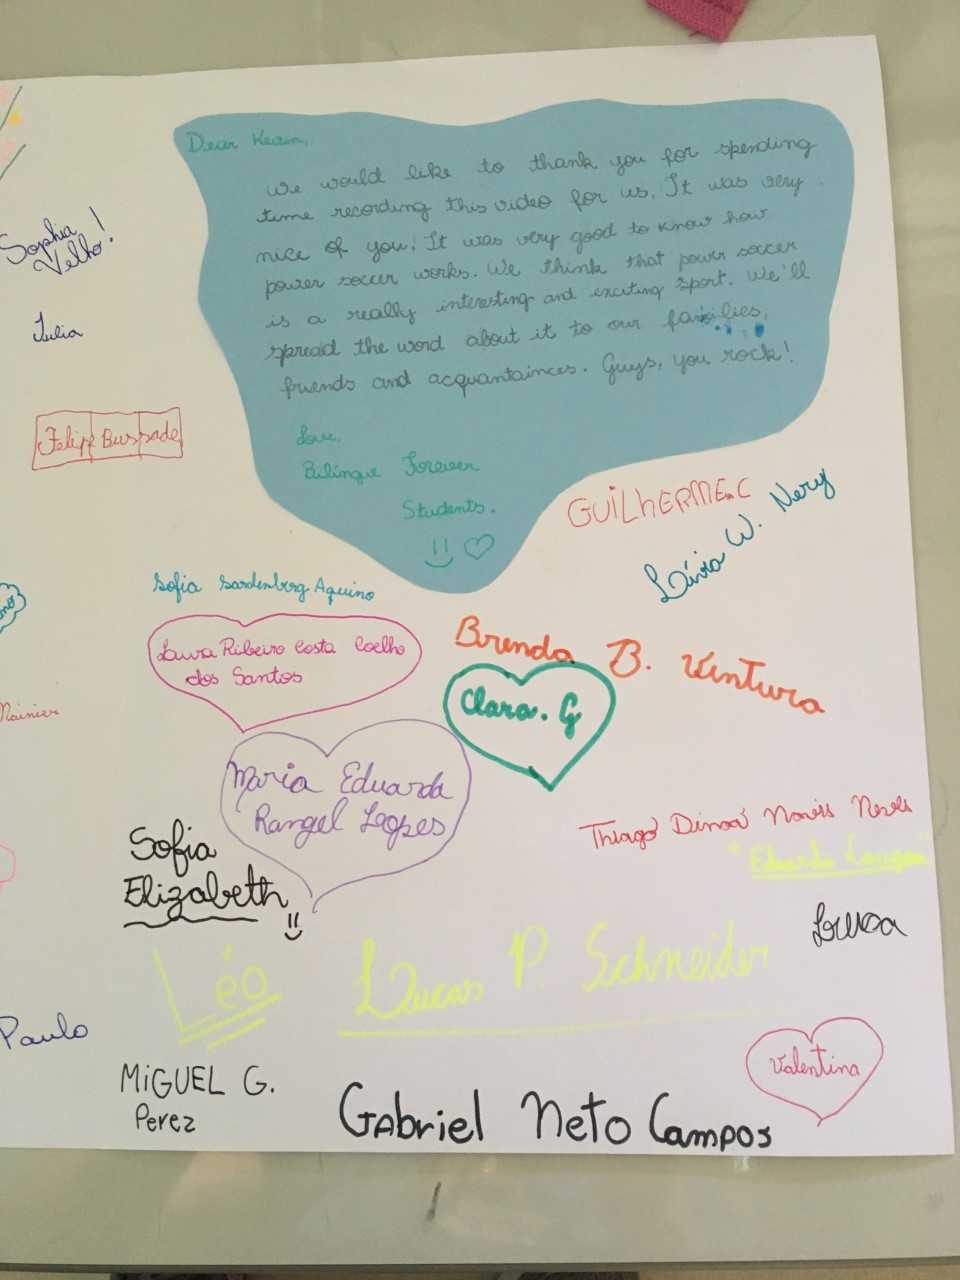 Dear
We would like to thank you for spending
time recording this video for us. It was very
nice of you. It was very good to know how
power soccer works. We think that power soccer
is a really interesting and exciting sport. We'll
spread the word about it to our families,
friends and acquantainces. Guys, you rock!
Love,
Bilingue Forever
Students.
Sophia
Velho!
Julia
Felipe Bussade
GUILHERME.C
Lívia W. Nery
Sofia Sardenberg Aquino
Laura Ribeiro Costa Coelho
dos Santos
Brenda B. Ventura
Clara. G
Rainier
Maria Eduarda
Rangel Lopes
Thiago
Eduardo
Sofia
Elizabeth
Luisa
Léo
Lucas P. Schneider
Paulo
Valentina
MiGUEL G.
Perez
Gabriel Neto Campos